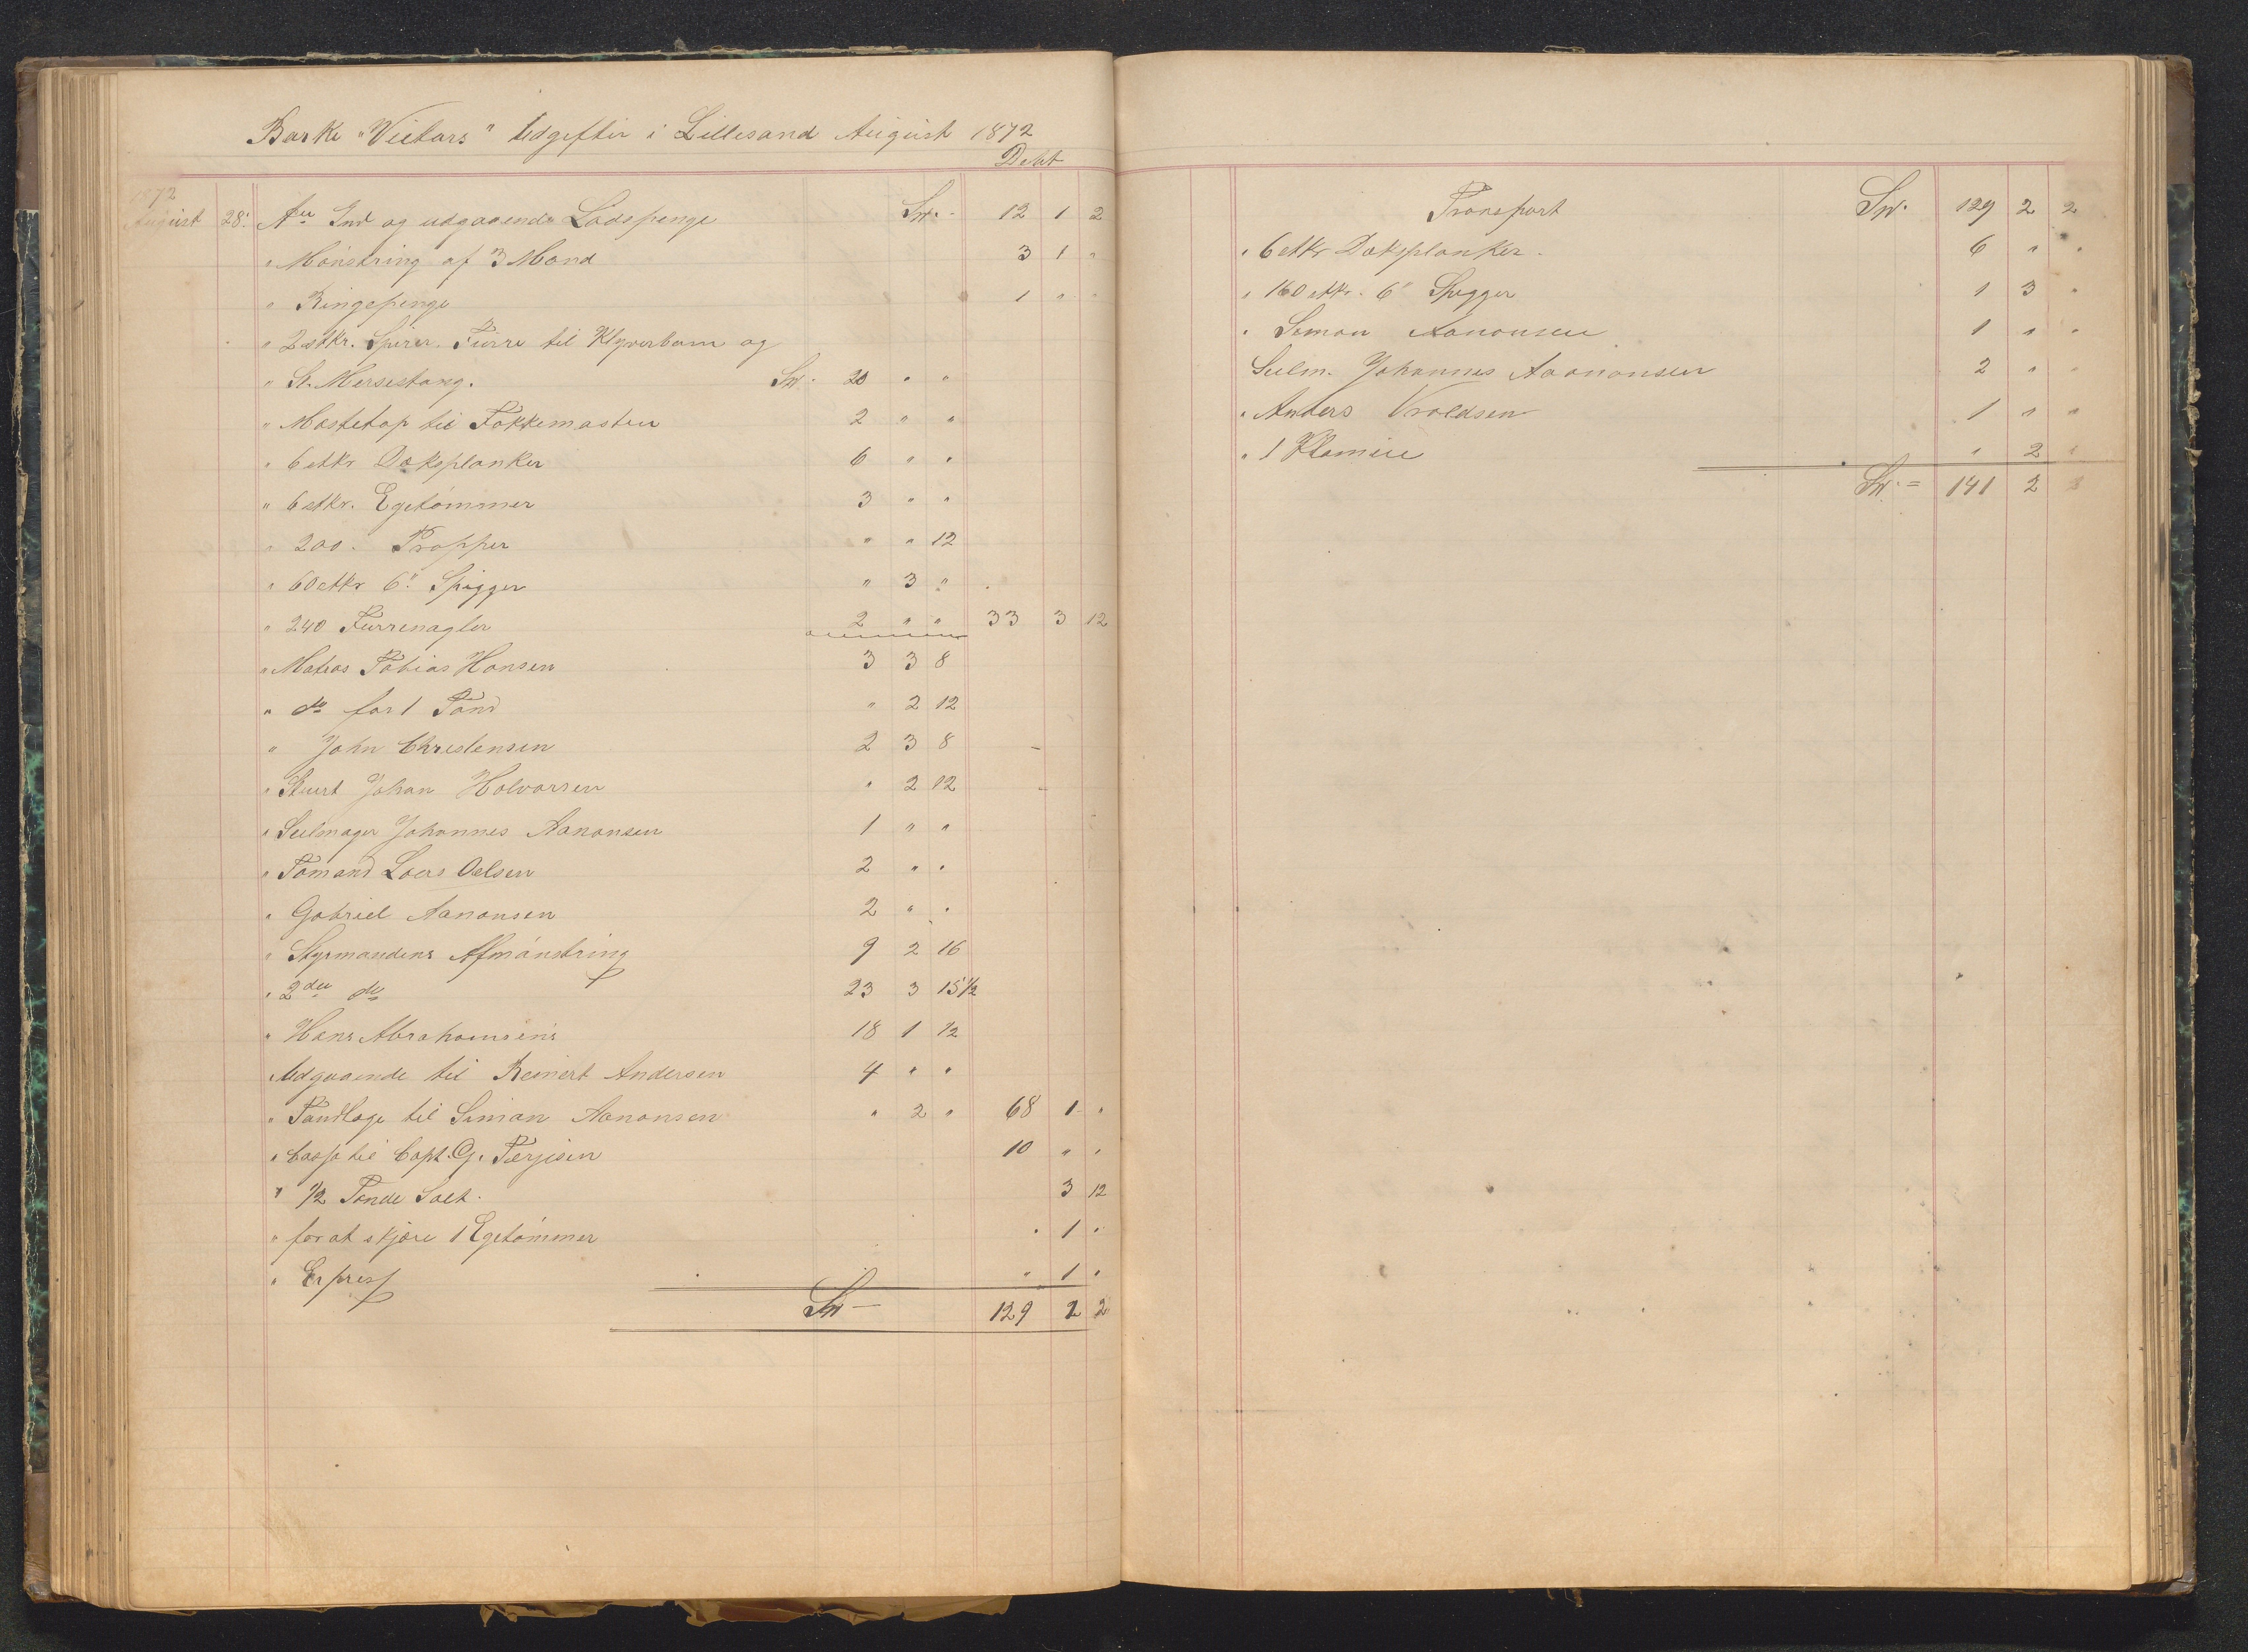 Barke "Victors" Udgifter i Lillesand August 1872
Debt
1872
August 28. An Ind og udgaaende Lodspenge Sp. 12 1 2
" Mönstring af 3 Mand 3 1 "
" Ringepenge 1 " "
" 2 stkr. Spirer Furre til Klyverbom og
" St. Mersestang. Sp. 20 " "
" Mastetop til Fokkemasten 2 " "
" 6 stkr Dæksplanker 6 " "
" 6 stkr. Egetömmer 3 " "
" 200. Propper " " 12
" 60 stkr 6" Spigger " 3 "
" 240 Furrenagler 2 " " 33 3 12
" Matros Tobias Hansen 3 3 8
" do for 1 Tönd " 2 12
" John Christensen 2 3 8
" Stuert Johan Halvorsen " 2 12
" Seilmager Johannes Aanonsen 1 " "
" Tömand Lars Oelsen 2 " "
" Gabriel Aanonsen 2 " "
" Styrmandens Afmönstring 9 2 16
" 2den do 23 3 15 1/2
" Hans Abrahamsens 18 1 1/2
Udgaaende til Reinert Andersen 4 " "
" til Simon Aanonsen " 2 " 68 1 "
" Cassa til Capt. G. Terjesen 10 " "
" 1/2 Tönde Salt. 3 12
" for at skjöre 1 Egetömmer " 1 "
" Expres " 1 "
Sp 129 2 2
Transport Sp. 129 2 2
" 6 stkr Dæksplanker. 6 " "
" 160 stkr. 6" Spigger 1 3 "
" Simon Aanonsen 1 " "
Seilm. Johannes Aanonsen 2 " "
" Anders Vroldsen 1 " "
" 1 " 2 "
Sp. = 141 2 2